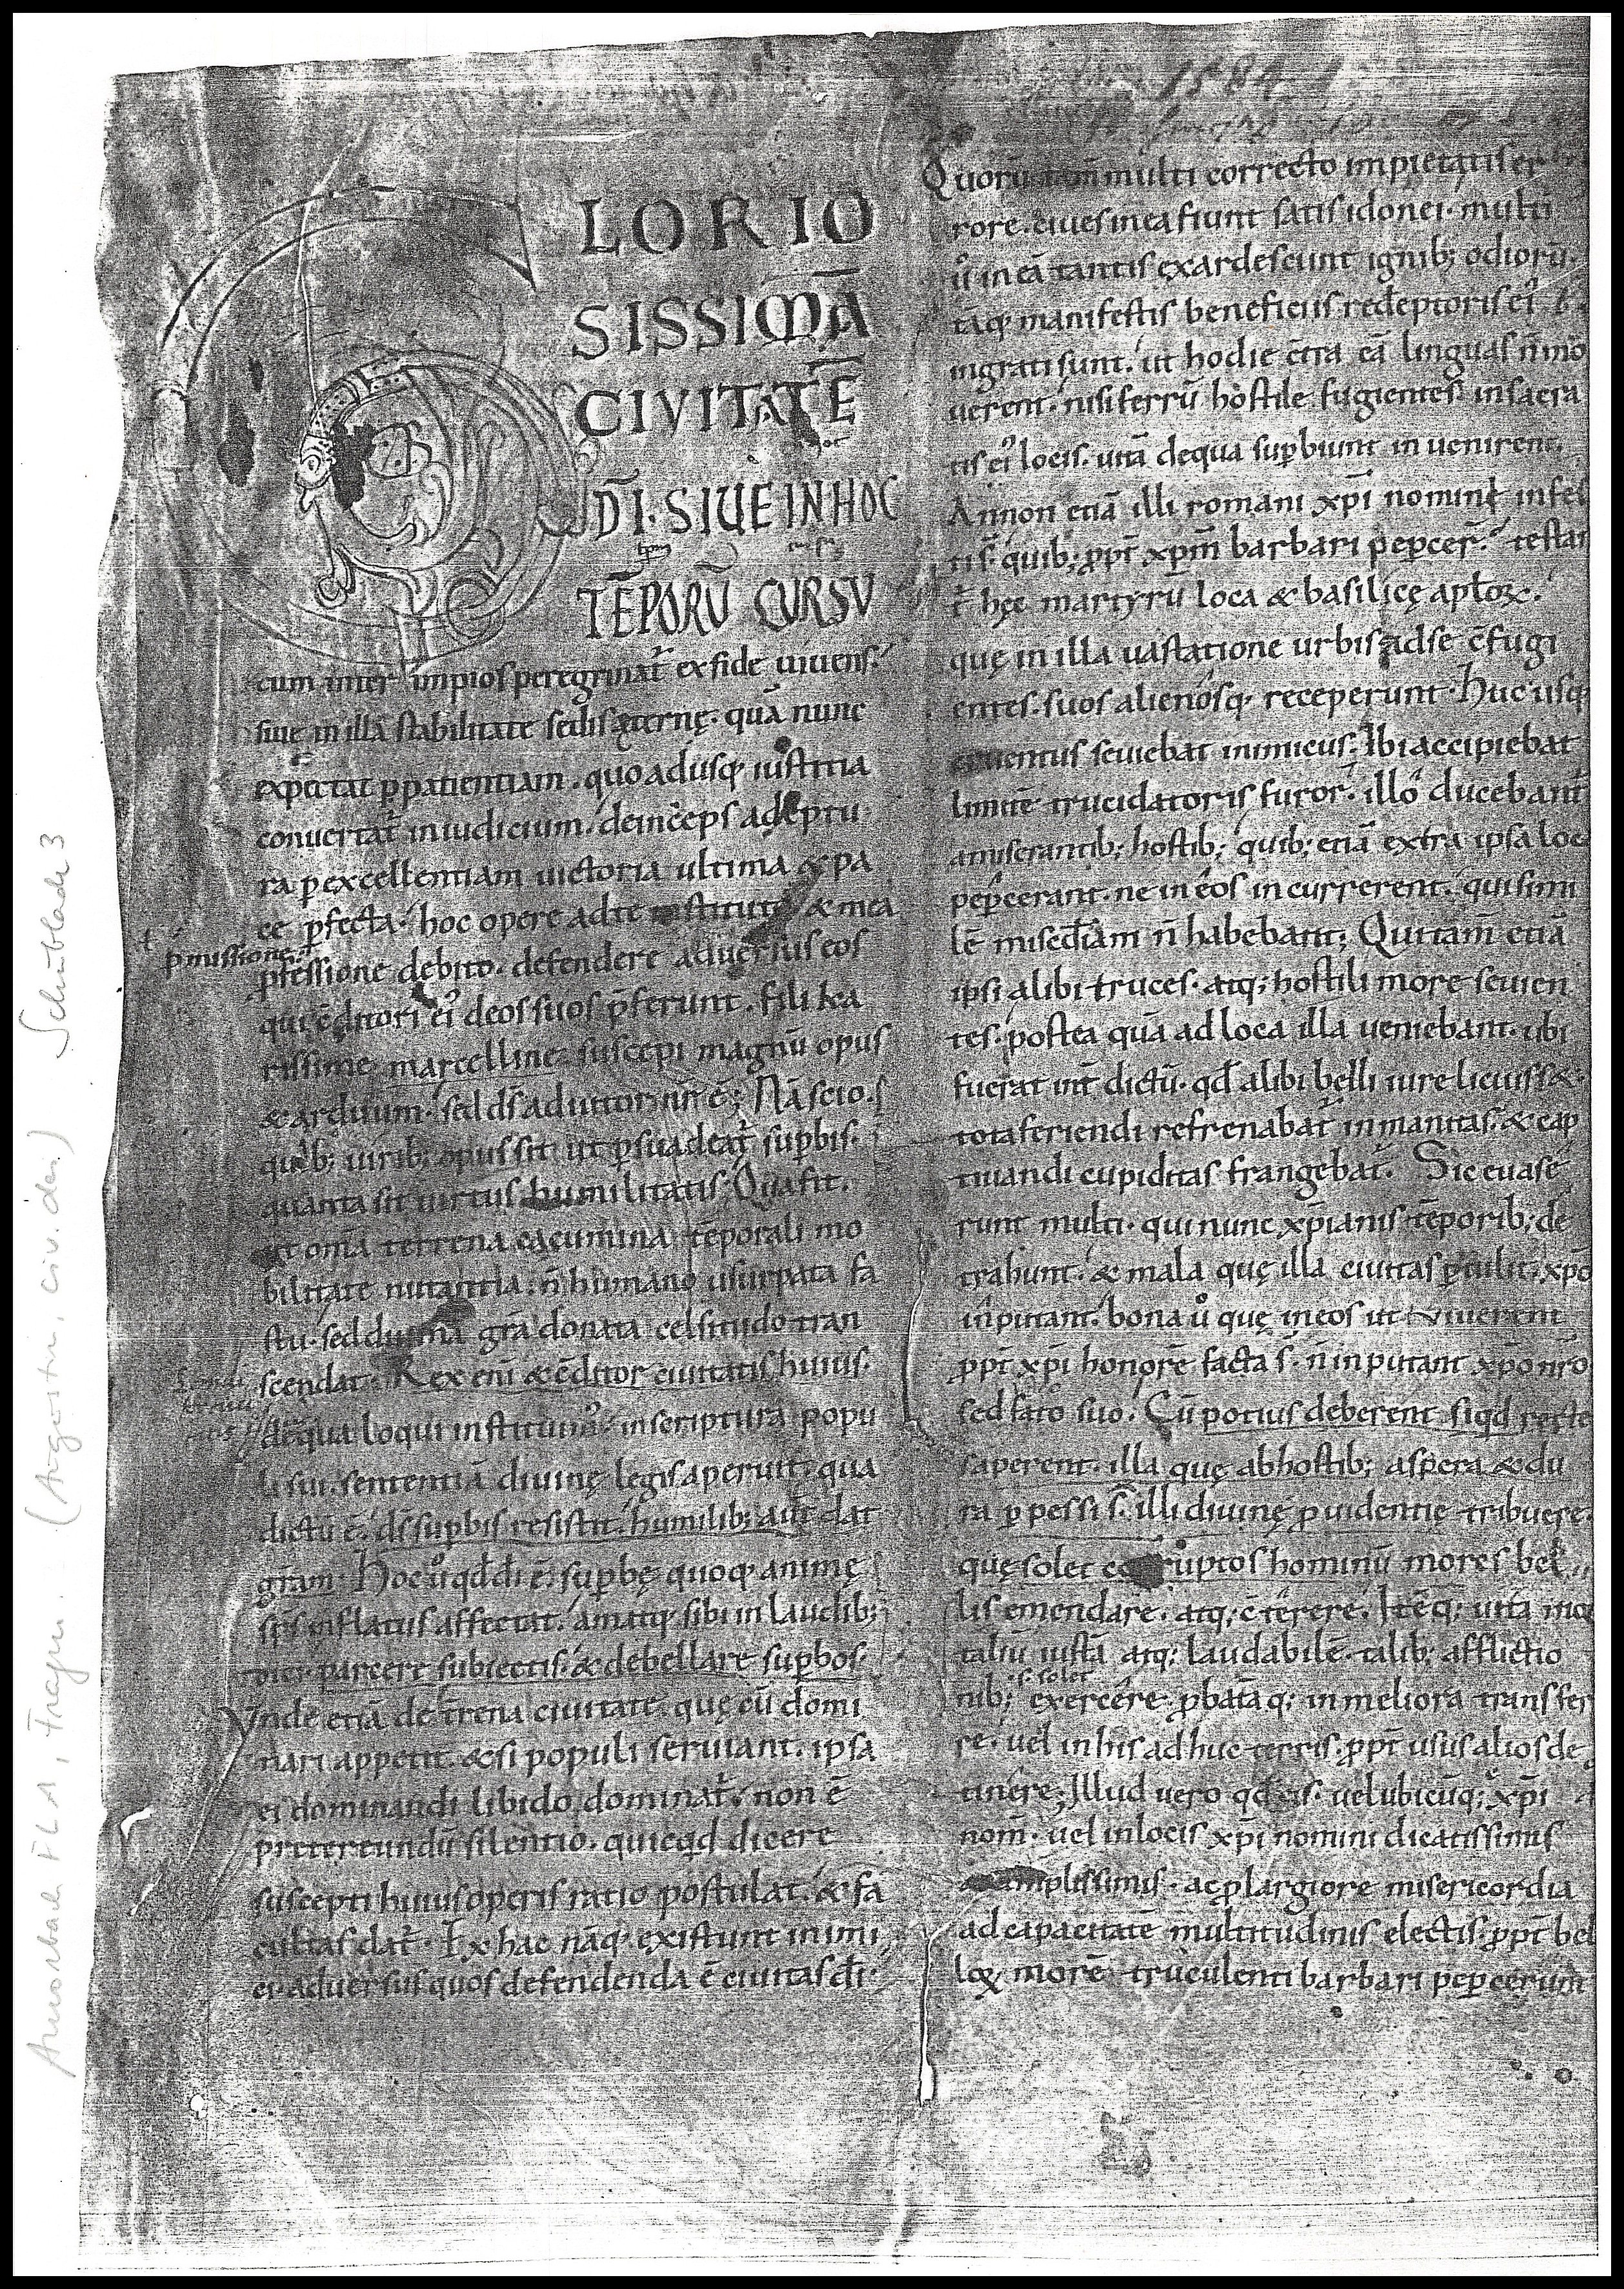 1584
GLORIO
SISSIMĀ
CIVITATĒ
DĪ· SIUE IN HOC
TĒPORŪ CURSU
cum inter impios peregrinat᷑ ex fide uiuens.
siue in illa stabilitate sedis ęternę. quā nunc
expectat ꝑ patientiam. quo adusq; iustitia
conuertat᷑ in iudicium. deinceps adeptu
ra ꝑ excellentiam uictoria ultima & pa
ce ꝑfecta. hoc opere ad te & mea
ꝓmissione
ꝓfessione debito. defendere aduersus eos
qui c̄ditori ei᷒ deos suos p̄ferunt. fili ka
rissime marcelline. suscepi magnū opus
& arduum. sed d̄s adiutor nr̄ ē; Nā scio.
quib; uirib; opus sit ut ꝑsuadeat᷑ suꝑbis.
quanta sit uirtus humilitatis. Qua fit.
ut om̄a terrena cacumina tēporali mo
bilitate nutantia. n̄ humano usurpata fa
stu. sed diuina gr̄a donata celsitudo tran
scendat. Rex enī & c̄ditor ciuitatis huius.
de qua loqui instituim᷒. in scriptura popu
li sui. sententiā diuinę legis aperuit. qua
dictū ē. d̄s suꝑbis resistit. humilib; aut̄ dat
gr̄am. Hoc u̾ qd̄ dī ē. suꝑbę quoq; animę
sp̄s inflatus affectat. amatq; sibi in laudib;
dici. parcere subiectis. & debellare suꝑbos.
Vnde etiā de t̄rena ciuitate. quę cū domi
nari appetit. & si populi seruiant. ipsa
ei dominandi libido dominat᷑. non ē
pretereundū silentio. quicqd dicere
suscepti huius operis ratio postulat. & fa
cultas dat᷑. Ex hac nāq; existunt inimi
ci. aduersus quos defendenda ē ciuitas dī.
Quorū tam̄ multi correcto impietatis er
rore. ciues in ea fiunt satis idonei. multi
u̾ in eā tantis exardescunt ignib; odiorū.
tāq; manifestis beneficiis redēptoris ei᷒
ingrati sunt. ut hodie c̄tra eā linguas n̄ mo
uerent. nisi ferrū hostile fugientes. in sacra
tis ei᷒ locis. uitā de qua suꝑbiunt inuenirent.
Annon etiā illi romani xp̄i nomini infes
ti s̄. quib; ꝓpt̄ xp̄m barbari peꝑcer̄. testan
t᷑ hęc martyrū loca & basilicę ap̄loꝝ.
quę in illa uastatione urbis ad se c̄fugi
entes. suos alienosq; receperunt. Huc usq;
cruentus seuiebat inimicus. Ibi accipiebat
limitē trucidatoris furor. illo ducebant᷑
a miserantib; hostib; quib; etiā extra ipsa loca
peꝑcerant. ne in eos incurrerent. qui simi
lē mis̄cdiam n̄ habebant; Qui tam̄ etiā
ipsi alibi truces. atq; hostili more seuien
tes. postea quā ad loca illa ueniebant. ubi
fuerat int̄dictū. qd̄ alibi belli iure licuiss&.
tota feriendi refrenabat᷑ inmanitas. & cap
tiuandi cupiditas frangebat᷑. Sic euase
runt multi. qui nunc xp̄ianis tēporib; de
trahunt. & mala quę illa ciuitas ꝑtulit. xp̄o
inputant. bona u̾ quę in eos ut uiuerent
ꝓpt̄ xp̄i honorē facta s̄. n̄ inputant xp̄o nr̄o
sed fato suo. Cū potius deberent siqd recte
saperent. illa quę ab hostib; aspera & du
ra ꝑpessi s̄. illi diuinę ꝓuidentię tribuere.
quę solet corruptos hominū mores bel
lis emendare. atq; c̄terere. Itēq; uitā mor
taliū iustā atq; laudabilē. talib; afflictio
s. solet
nib; exercere. ꝓbatāq; in meliora transfer
re. uel in his adhuc terris. ꝓpt̄ usus alios de
tinere; Illud vero qd̄ eis. uel ubicūq; xp̄i
nom̄. uel in locis xp̄i nomini dicatissimis
amplissimis. ac ꝓ largiore misericordia
ad capacitatē multitudinis electis. ꝓpt̄ bel
loꝝ morē truculenti barbari peꝑcerunt
Amorbach FLA, Fragm. (Augustin, civ. dei) Schublade 3